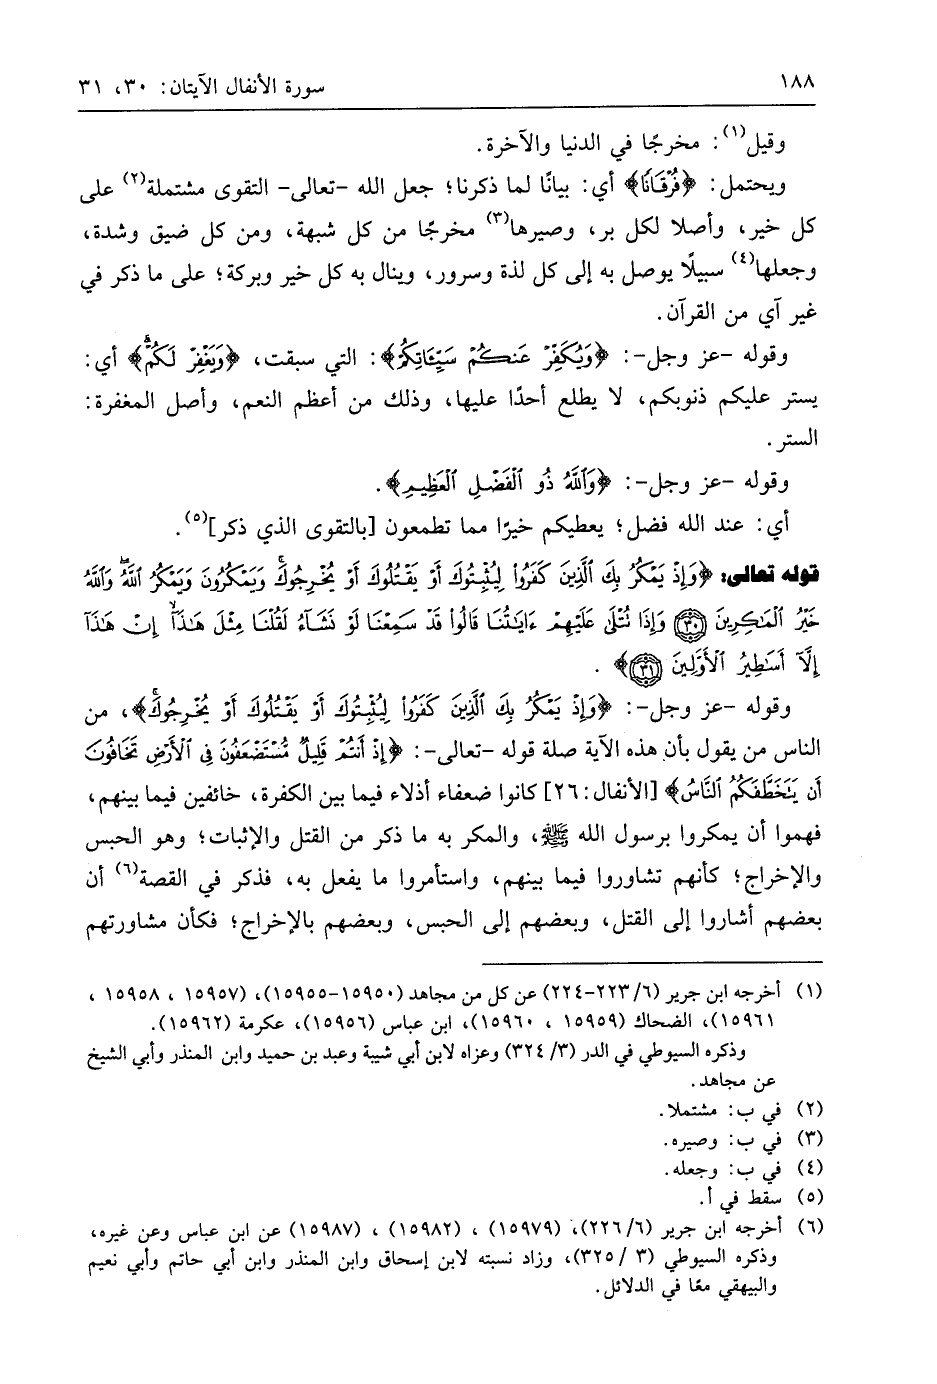 ١٨٨ سورة الأنفال الآيتان: ٣٠، ٣١
وقيل(١): مخرجًا في الدنيا والآخرة.
ويحتمل: ﴿فُرْقَانًا﴾ أي: بيانًا لما ذكرنا؛ جعل الله -تعالى- التقوى مشتملة(٢) على
كل خير، وأصلا لكل بر، وصيرها(٣) مخرجًا من كل شبهة، ومن كل ضيق وشدة،
وجعلها(٤) سبيلًا يوصل به إلى كل لذة وسرور، وينال به كل خير وبركة؛ على ما ذكر في
غير آي من القرآن.
وقوله -عز وجل-: ﴿وَيُكَفِّرْ عَنكُمْ سَيِّئَاتِكُمْ﴾: التي سبقت، ﴿وَيَغْفِرْ لَكُمْۗ﴾ أي:
يستر عليكم ذنوبكم، لا يطلع أحدًا عليها، وذلك من أعظم النعم، وأصل المغفرة:
الستر.
وقوله -عز وجل-: ﴿وَٱللَّهُ ذُو ٱلْفَضْلِ ٱلْعَظِيمِ﴾.
أي: عند الله فضل؛ يعطيكم خيرًا مما تطمعون [بالتقوى الذي ذكر](٥).
قوله تعالى: ﴿وَإِذْ يَمْكُرُ بِكَ ٱلَّذِينَ كَفَرُوا۟ لِيُثْبِتُوكَ أَوْ يَقْتُلُوكَ أَوْ يُخْرِجُوكَۚ وَيَمْكُرُونَ وَيَمْكُرُ ٱللَّهُۖ وَٱللَّهُ
خَيْرُ ٱلْمَٰكِرِينَ ٣٠ وَإِذَا تُتْلَىٰ عَلَيْهِمْ ءَايَٰتُنَا قَالُوا۟ قَدْ سَمِعْنَا لَوْ نَشَآءُ لَقُلْنَا مِثْلَ هَٰذَآۙ إِنْ هَٰذَآ
إِلَّآ أَسَٰطِيرُ ٱلْأَوَّلِينَ ٣١﴾.
وقوله -عز وجل-: ﴿وَإِذْ يَمْكُرُ بِكَ ٱلَّذِينَ كَفَرُوا۟ لِيُثْبِتُوكَ أَوْ يَقْتُلُوكَ أَوْ يُخْرِجُوكَۚ﴾، من
الناس من يقول بأن هذه الآية صلة قوله -تعالى-: ﴿إِذْ أَنتُمْ قَلِيلٌ مُّسْتَضْعَفُونَ فِى ٱلْأَرْضِ تَخَافُونَ
أَن يَتَخَطَّفَكُمُ ٱلنَّاسُ﴾ [الأنفال:٢٦] كانوا ضعفاء أذلاء فيما بين الكفرة، خائفين فيما بينهم،
فهموا أن يمكروا برسول الله ﷺ، والمكر به ما ذكر من القتل والإثبات؛ وهو الحبس
والإخراج؛ كأنهم تشاوروا فيما بينهم، واستأمروا ما يفعل به، فذكر في القصة(٦) أن
بعضهم أشاروا إلى القتل، وبعضهم إلى الحبس، وبعضهم بالإخراج؛ فكأن مشاورتهم
(١) أخرجه ابن جرير (٦/٢٢٣-٢٢٤) عن كل من مجاهد (١٥٩٥٠-١٥٩٥٥)، (١٥٩٥٧ ، ١٥٩٥٨ ،
١٥٩٦١)، الضحاك (١٥٩٥٩ ، ١٥٩٦٠)، ابن عباس (١٥٩٥٦)، عكرمة (١٥٩٦٢).
وذكره السيوطي في الدر (٣/ ٣٢٤) وعزاه لابن أبي شيبة وعبد بن حميد وابن المنذر وأبي الشيخ
عن مجاهد.
(٢) في ب: مشتملا.
(٣) في ب: وصيره.
(٤) في ب: وجعله.
(٥) سقط في أ.
(٦) أخرجه ابن جرير (٦/٢٢٦)، (١٥٩٧٩) ، (١٥٩٨٢) ، (١٥٩٨٧) عن ابن عباس وعن غيره،
وذكره السيوطي (٣ /٣٢٥)، وزاد نسبته لابن إسحاق وابن المنذر وابن أبي حاتم وأبي نعيم
والبيهقي معًا في الدلائل.